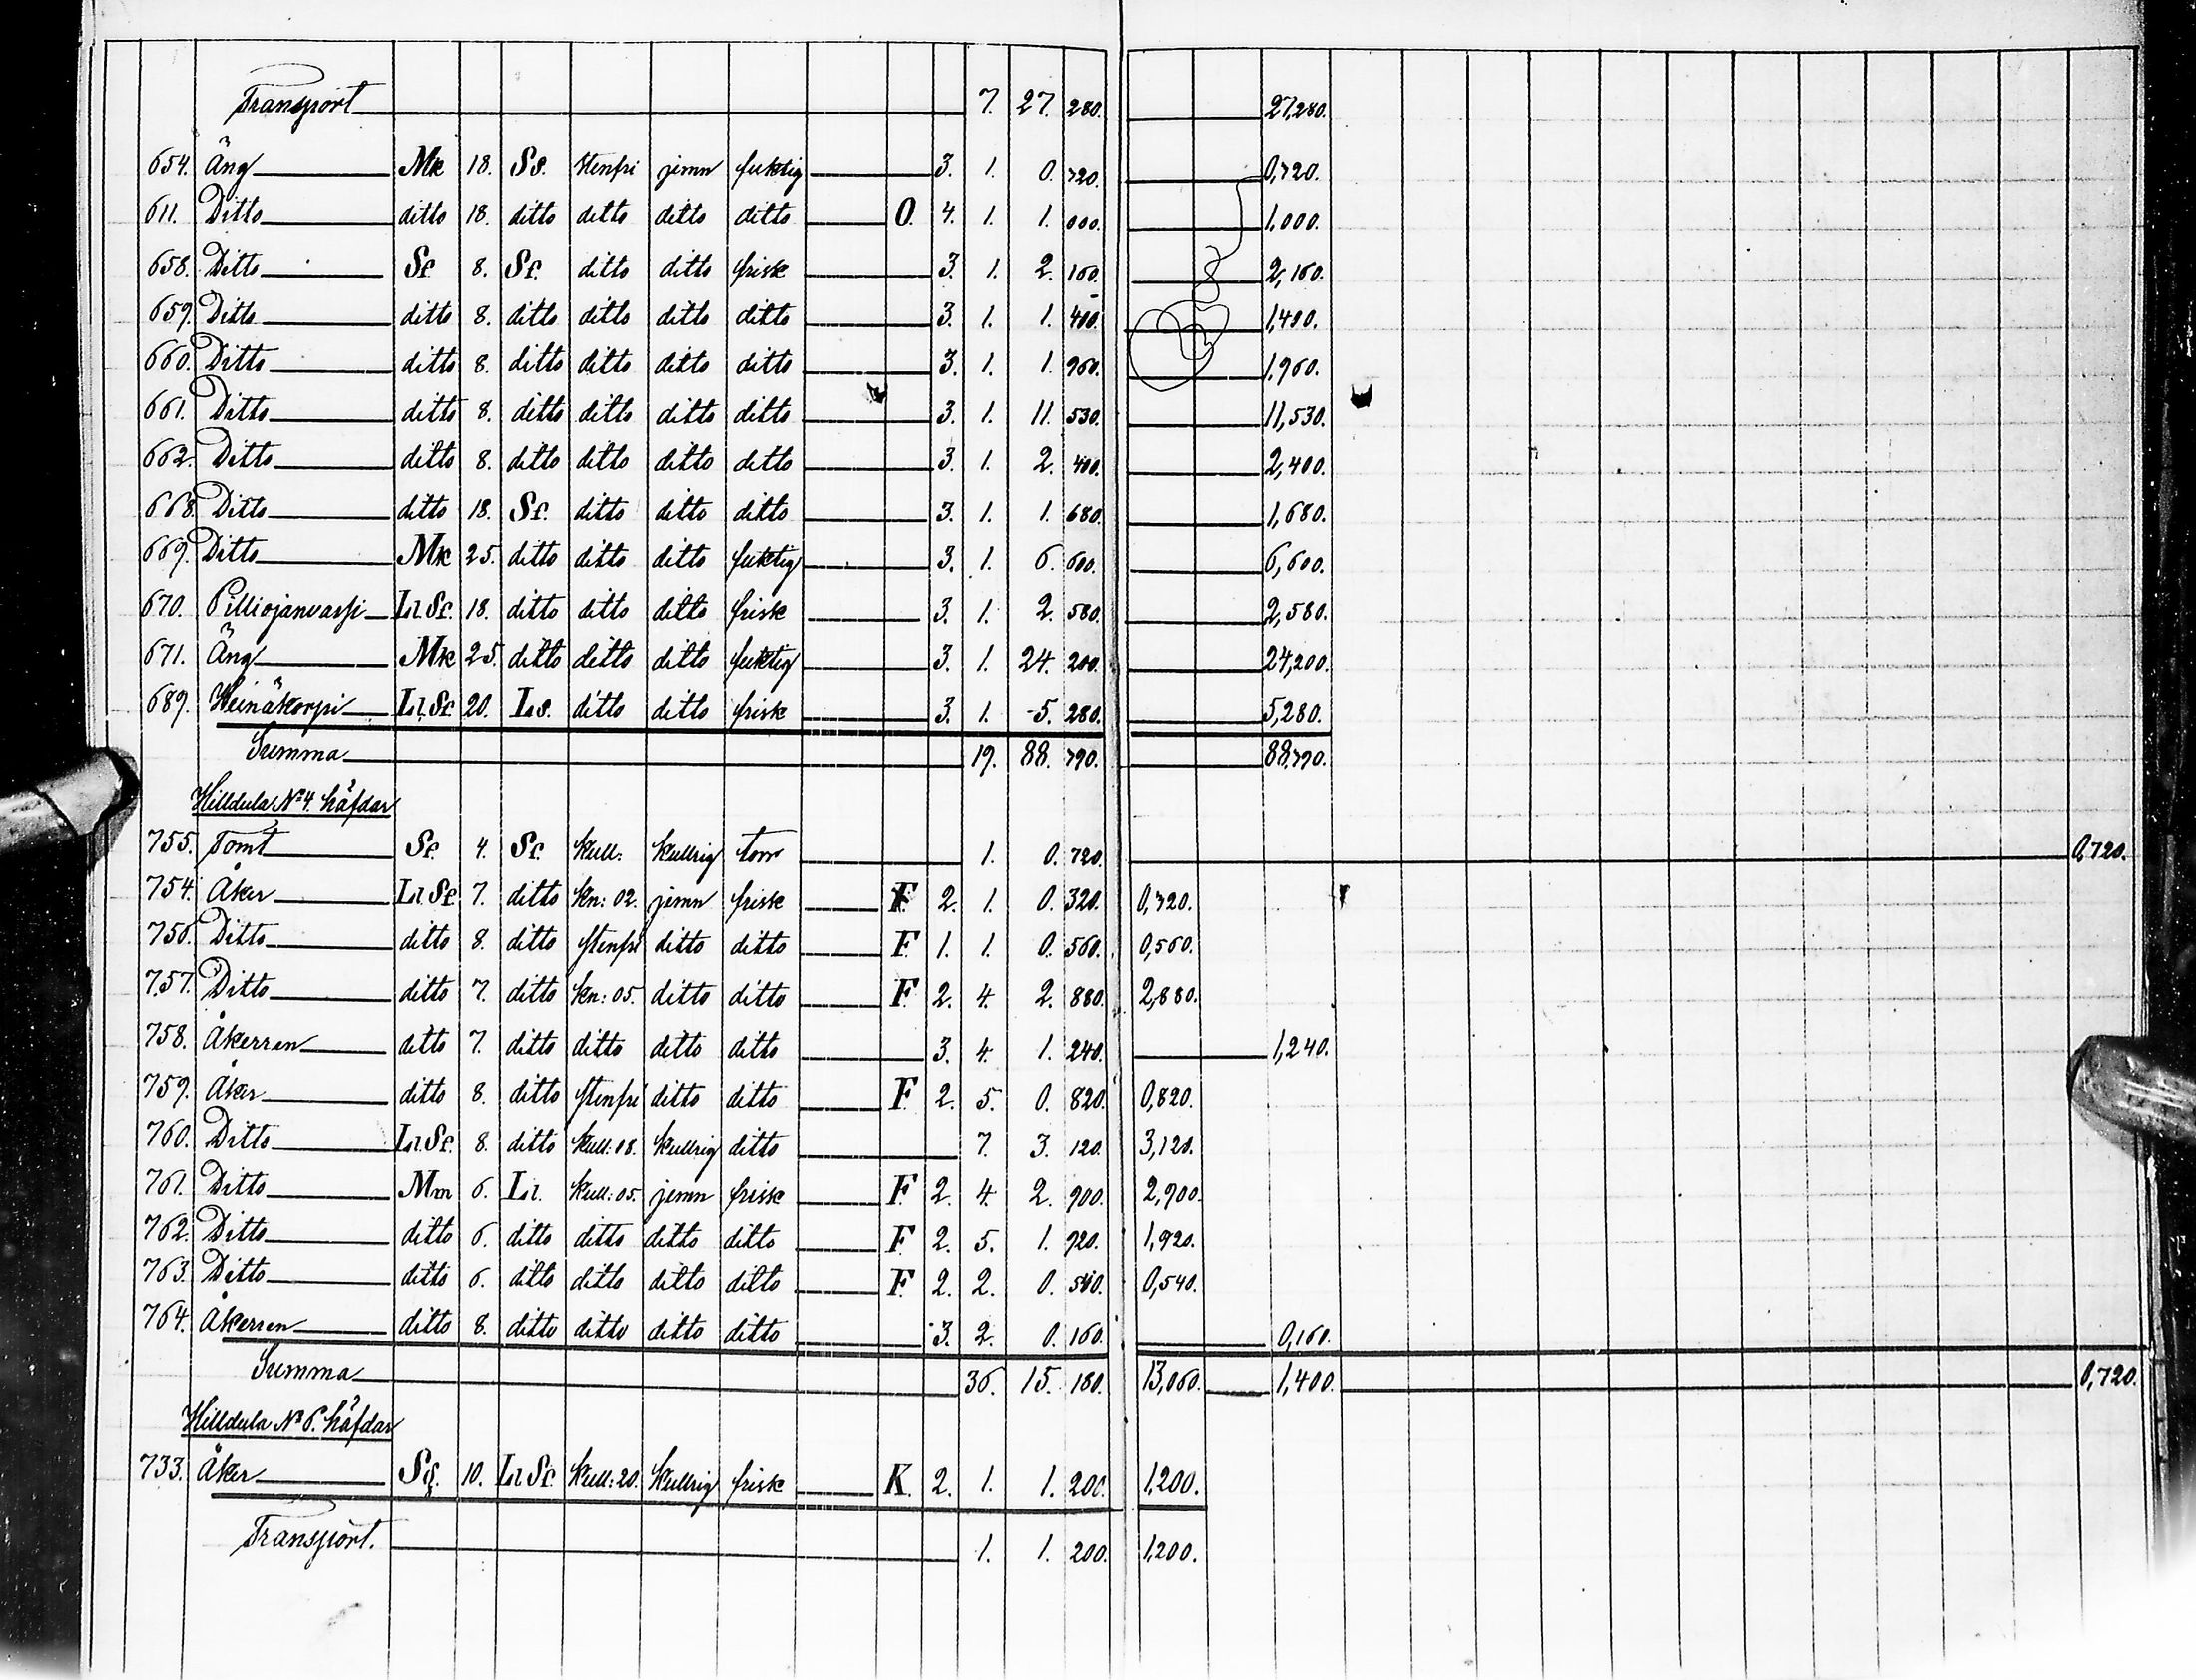 Transport 7. 27. 280. 27,280.
654. Äng Mk 18. Ss. stenfri jemn fuktig 3. 1. 0. 720. 0,720.
611. Ditto ditto 18. ditto ditto ditto ditto O. 4. 1. 1. 000. 1,000.
658. Ditto Sf 8. Sf. ditto ditto frisk 3. 1. 2. 160. 2,160.
659. Ditto ditto 8. ditto ditto ditto ditto 3. 1. 1. 400. 1,400.
660. Ditto ditto 8. ditto ditto ditto ditto 3. 1. 1. 960. 1,960.
661. Ditto ditto 8. ditto ditto ditto ditto 3. 1. 11. 530. 11,530.
662. Ditto ditto 8. ditto ditto ditto ditto 3. 1. 2. 400. 2,400.
668. Ditto ditto 18. Sf. ditto ditto ditto 3. 1. 1. 680. 1,680.
669. Ditto Mk 25. ditto ditto ditto fuktig 3. 1. 6. 600. 6,600.
670. Pilliojanvassi Ll.Sf. 18. ditto ditto ditto frisk 3. 1. 2. 580. 2,580.
671. Äng Mk 25. ditto ditto ditto fuktig 3. 1. 24. 200. 24,200.
689. Heinäkorpi Ll.Sf. 20. Ls. ditto ditto frisk 3. 1. 5. 280. 5,280.
Summa 19. 88. 790. 88,790.
Hilldula No 4. häfdar
755. Tomt Sf. 4. Sf. kull: kullrig torr 1. 0. 720. 0,720.
754. Åker Ll.Sf 7. ditto kn: 02. jemn frisk F. 2. 1. 0. 320. 0,320.
756. Ditto ditto 8. ditto stenfri ditto ditto F. 1. 1. 0. 560. 0,560.
757. Ditto ditto 7. ditto kn: 05. ditto ditto F. 2. 4. 2. 880. 2,880.
758. Åkerren ditto 7. ditto ditto ditto ditto 3. 4. 1. 240. 1,240.
759. Åker ditto 8. ditto stenfri ditto ditto F. 2. 5. 0. 820. 0,820.
760. Ditto Ll.Sf. 8. ditto kull: 08. kullrig ditto 7. 3. 120. 3,120.
761. Ditto Mm 6. Ll. kull: 05. jemn frisk F. 2. 4. 2. 900. 2,900.
762. Ditto ditto 6. ditto ditto ditto ditto F. 2. 5. 1. 920. 1,920.
763. Ditto ditto 6. ditto ditto ditto ditto F. 2. 2. 0. 540. 0,540.
764. Åkerren ditto 8. ditto ditto ditto ditto 3. 2. 0. 160. 0,160.
Summa 36. 15. 180. 13,060. 1,400. 0,720.
Hilldula No 6. häfdar
733. Åker Sg. 10. Ll.Sf. kull: 20. kullrig frisk K. 2. 1. 1. 200. 1,200.
Transport. 1. 1. 200. 1,200.